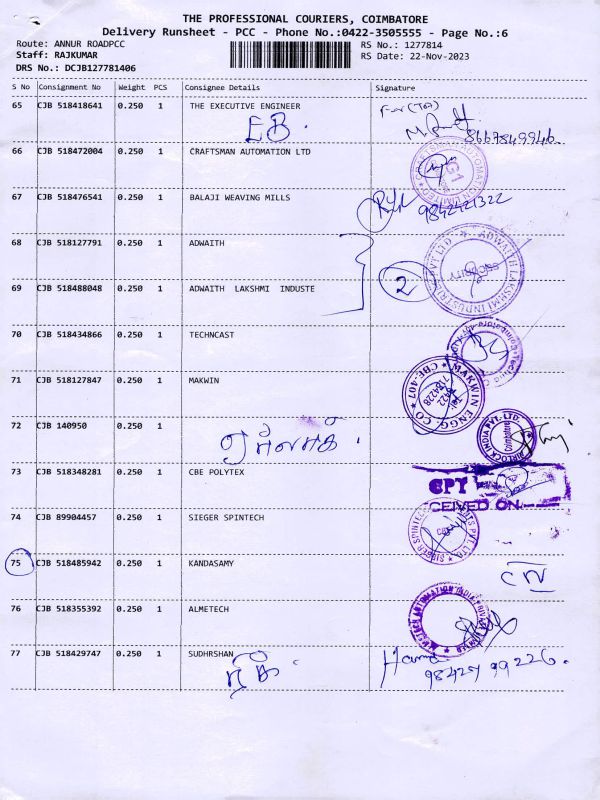 THE PROFESSIONAL COURIERS, COIMBATORE
Delivery Runsheet - PCC - Phone No.:0422-3505555 - Page No.:6
Route: ANNUR ROADPCC RS No.: 1277814
Staff: RAJKUMAR RS Date: 22-Nov-2023
DRS No.: DCJB127781406
S No Consignment No Weight PCS Consignee Details Signature
65 CJB 518418641 0.250 1 THE EXECUTIVE ENGINEER
EB. 8667849946
66 CJB 518472004 0.250 1 CRAFTSMAN AUTOMATION LTD
67 CJB 518476541 0.250 1 BALAJI WEAVING MILLS
9842421322
68 CJB 518127791 0.250 1 ADWAITH
69 CJB 518488048 0.250 1 ADWAITH LAKSHMI INDUSTE
2
ADWAITH LAKSHMI INDUSTRIES PVT LTD
SECURITY
70 CJB 518434866 0.250 1 TECHNCAST
71 CJB 518127847 0.250 1 MAKWIN
MAKWIN ENGG. CO CBE-407
72 CJB 140950 0.250 1
73 CJB 518348281 0.250 1 CBE POLYTEX
CPT
RECEIVED ON
74 CJB 89904457 0.250 1 SIEGER SPINTECH
75 CJB 518485942 0.250 1 KANDASAMY
76 CJB 518355392 0.250 1 ALMETECH
77 CJB 518429747 0.250 1 SUDHRSHAN
98427 99226.